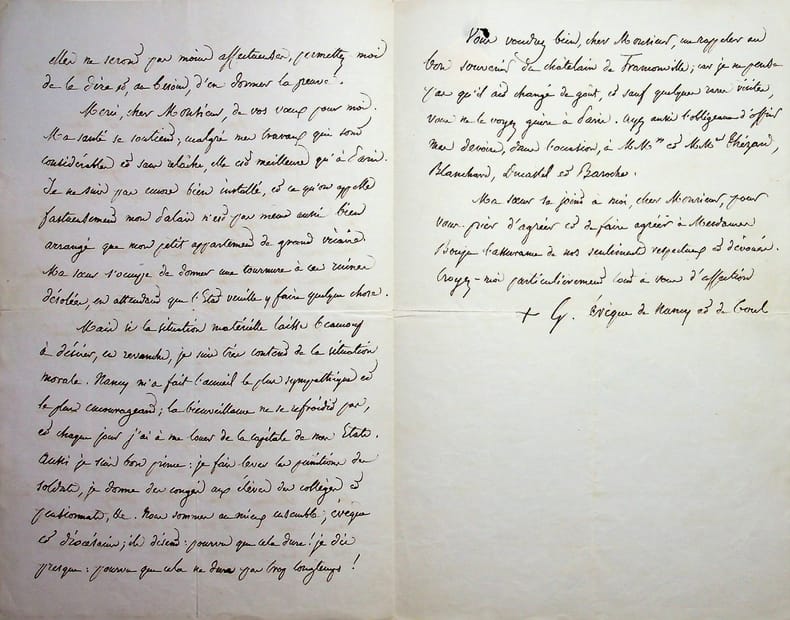 elles ne seront pas moins affectueuses, permettez moi
de le dire et, au besoin, d'en donner la preuve.
Merci, cher Monsieur, de vos vœux pour moi.
Ma santé se soutient; malgré mes travaux qui sont
considérables et sans relâche, elle est meilleure qu'à Paris.
Je ne suis pas encore bien installé, et ce qu'on appelle
fastueusement mon Palais n'est pas même aussi bien
arrangé que mon petit appartement de grand vicaire.
Ma sœur s'occupe de donner une tournure à ces ruines
désolées, en attendant que l'Etat veuille y faire quelque chose.
Mais si la situation matérielle laisse beaucoup
à désirer, en revanche, je suis très content de la situation
morale. Nancy m'a fait l'accueil le plus sympathique et
le plus encourageant; la bienveillance ne se refroidit pas,
et chaque jour j'ai à me louer de la capitale de mes Etats.
Aussi je suis bon prince: je fais lever les punitions des
soldats, je donne des congés aux élèves des collèges et
pensionnats, &c. Nous sommes au mieux ensemble, évêque
et diocésains; ils disent: pourvu que cela dure! je dis
presque: pourvu que cela ne dure pas trop longtemps!
Vous voudrez bien, cher Monsieur, me rappeler au
bon souvenir du châtelain de Franconville; car je ne pense
pas qu'il ait changé de goût, et sauf quelques rares visites,
vous ne le voyez guère à Paris. Ayez aussi l'obligeance d'offrir
mes devoirs, dans l'occasion, à M. Mme et MMrs
Blanchard, et Baroche.
Ma sœur se joint à moi, cher Monsieur, pour
vous prier d'agréer et de faire agréer à Mesdames
l'assurance de nos sentiments respectueux et dévoués.
Croyez-moi particulièrement tout à vous d'affection
+ G. Evêque de Nancy et de Toul